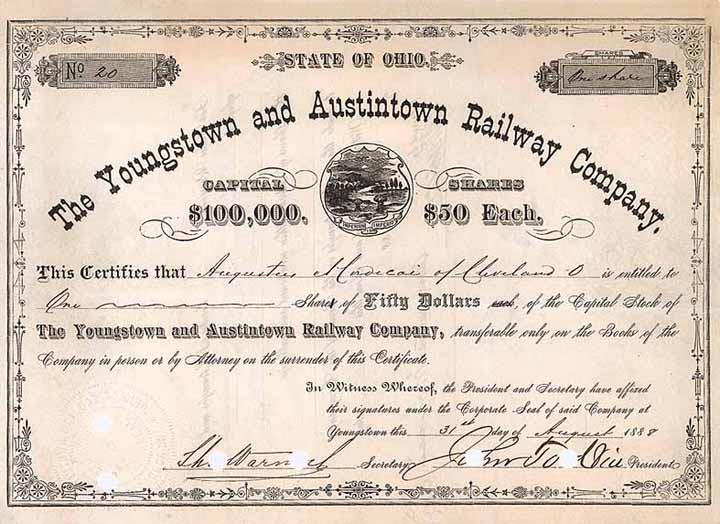 No 20
STATE OF OHIO.
SHARES
One share
The Youngstown and Austintown Railway Company.
CAPITAL
$100,000.
SHARES
$50 Each.
IMPERIUM IN IMPERIO
This Certifies that Augustus Mordecai of Cleveland O is entitled to
One Share of Fifty Dollars each, of the Capital Stock of
The Youngstown and Austintown Railway Company, transferable only on the Books of the
Company in person or by Attorney on the surrender of this Certificate.
In Witness Whereof, the President and Secretary have affixed
their signatures under the Corporate Seal of said Company at
Youngstown this 31st day of August 1888
Warnock Secretary John President